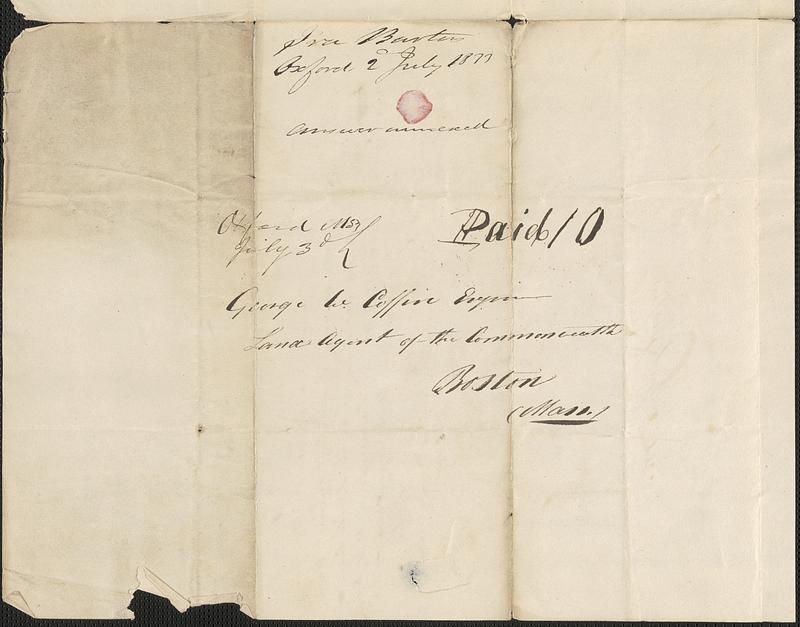 Ira Barton
Oxford 2d July 1833
answer annexed
Oxford Ms
July 3d
Paid 10
George W. Coffin Esquire
Land Agent of the Commonwealth
Boston
Mass.